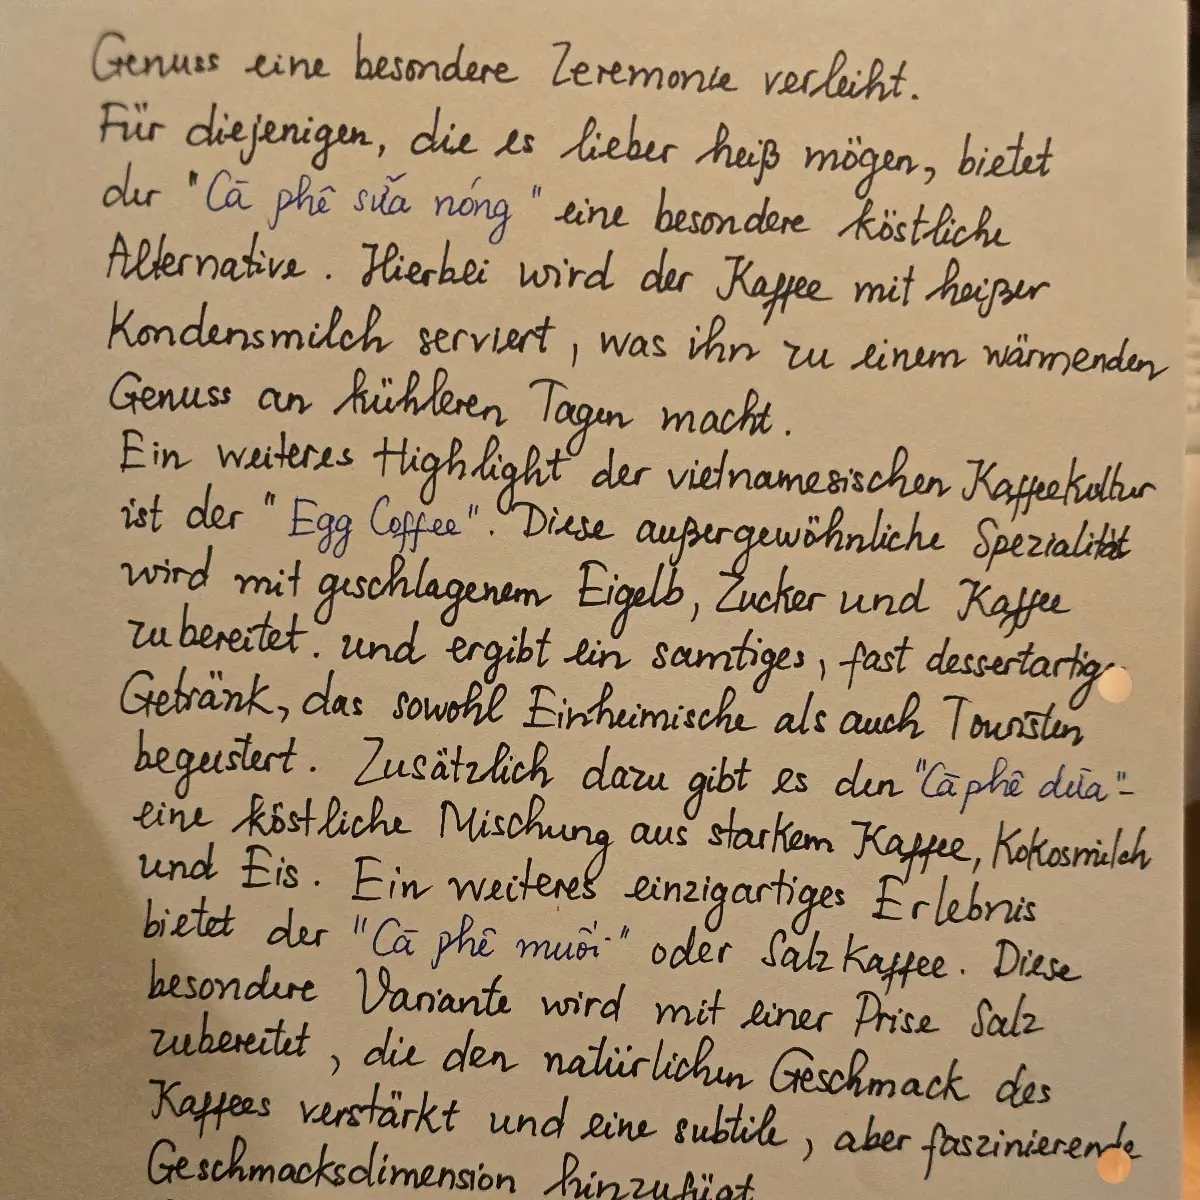 Genuss eine besondere Zeremonie verleiht.
Für diejenigen, die es lieber heiß mögen, bietet
der "Cà phê sữa nóng" eine besondere köstliche
Alternative. Hierbei wird der Kaffee mit heißer
Kondensmilch serviert, was ihn zu einem wärmenden
Genuss an kühleren Tagen macht.
Ein weiteres Highlight der vietnamesischen Kaffeekultur
ist der "Egg Coffee". Diese außergewöhnliche Spezialität
wird mit geschlagenem Eigelb, Zucker und Kaffee
zubereitet. und ergibt ein samtiges, fast dessertartig
Getränk, das sowohl Einheimische als auch Touristen
begeistert. Zusätzlich dazu gibt es den "Cà phê dừa"-
eine köstliche Mischung aus starkem Kaffee, Kokosmilch
und Eis. Ein weiteres einzigartiges Erlebnis
bietet der "Cà phê muối" oder Salzkaffee. Diese
besondere Variante wird mit einer Prise Salz
zubereitet, die den natürlichen Geschmack des
Kaffees verstärkt und eine subtile, aber faszinierende
Geschmacksdimension hinzufügt